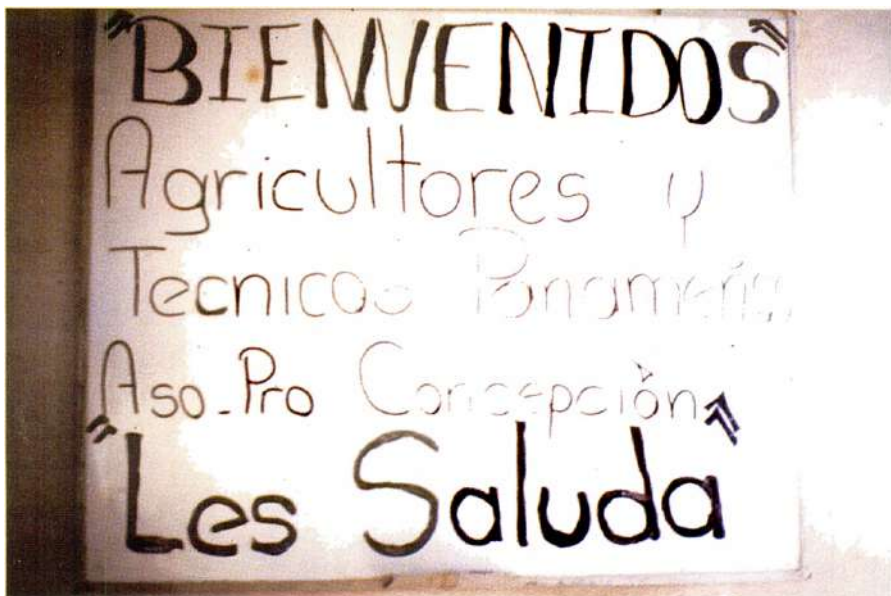 "BIENVENIDOS"
Agricultores y
Tecnicos Panameños
Aso-Pro Concepción
"Les Saluda"